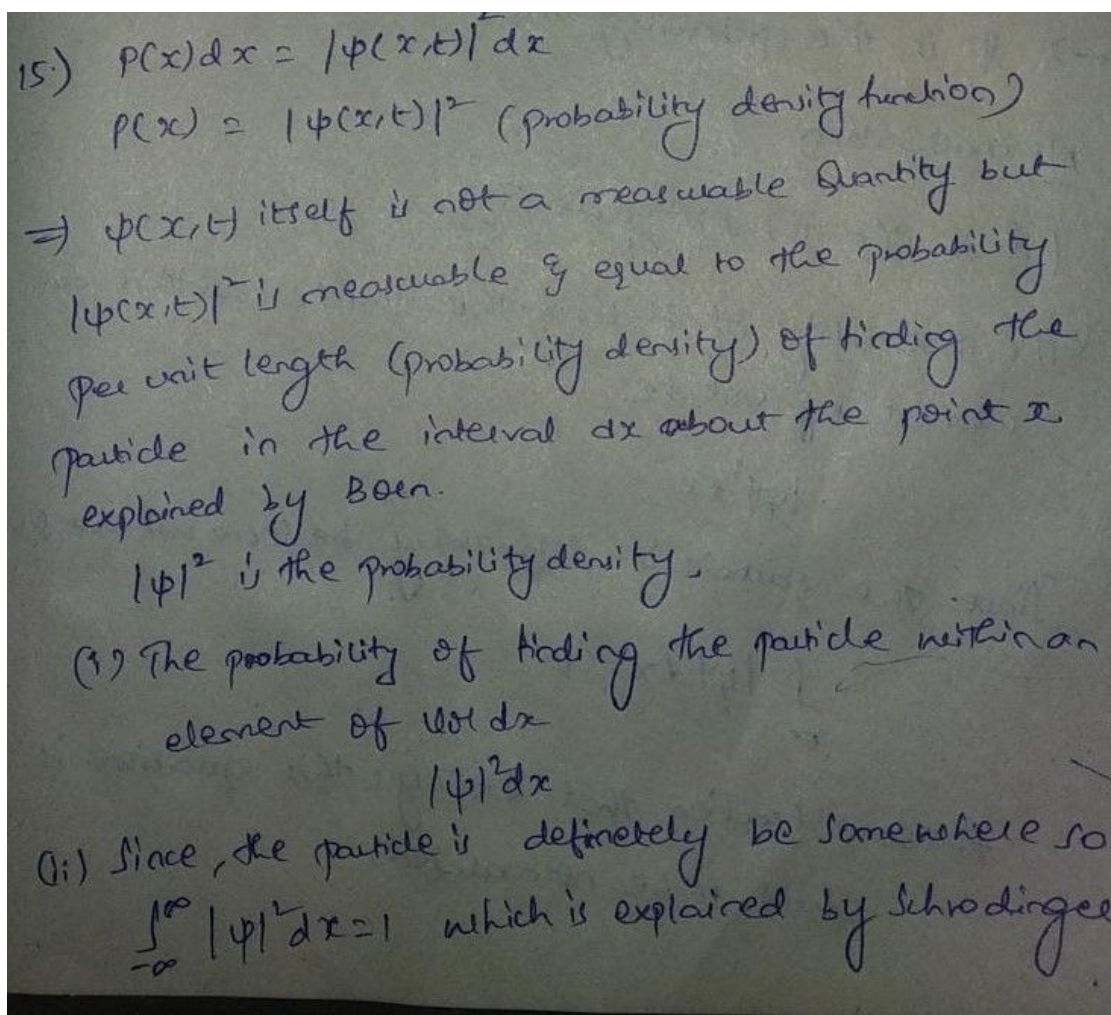 15.) P(x)dx = |ψ(x,t)|² dx
P(x) = |ψ(x,t)|² (probability density function)
⇒ ψ(x,t) itself is not a measurable Quantity but
|ψ(x,t)|² is measurable & equal to the probability
per unit length (probability density) of finding the
particle in the interval dx about the point x
explained by Born.
|ψ|² is the probability density.
(i) The probability of finding the particle within an
element of vol dx
|ψ|²dx
(ii) Since, the particle is definetely be somewhere so
∫₋∞^∞ |ψ|²dx=1 which is explained by Schrodinger